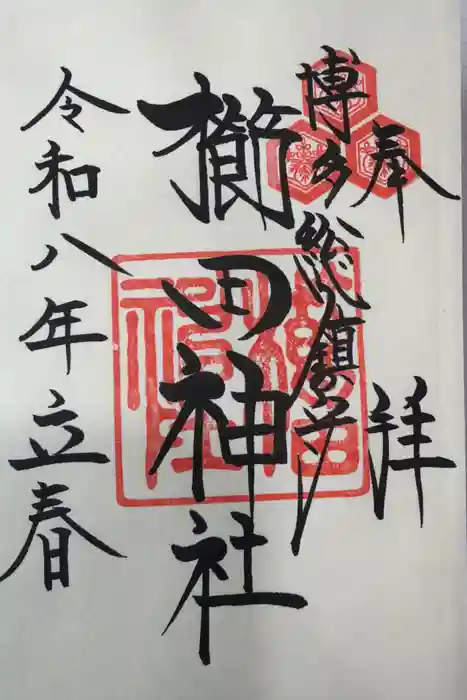 奉拝
博多総鎮守
櫛田神社
令和八年立春